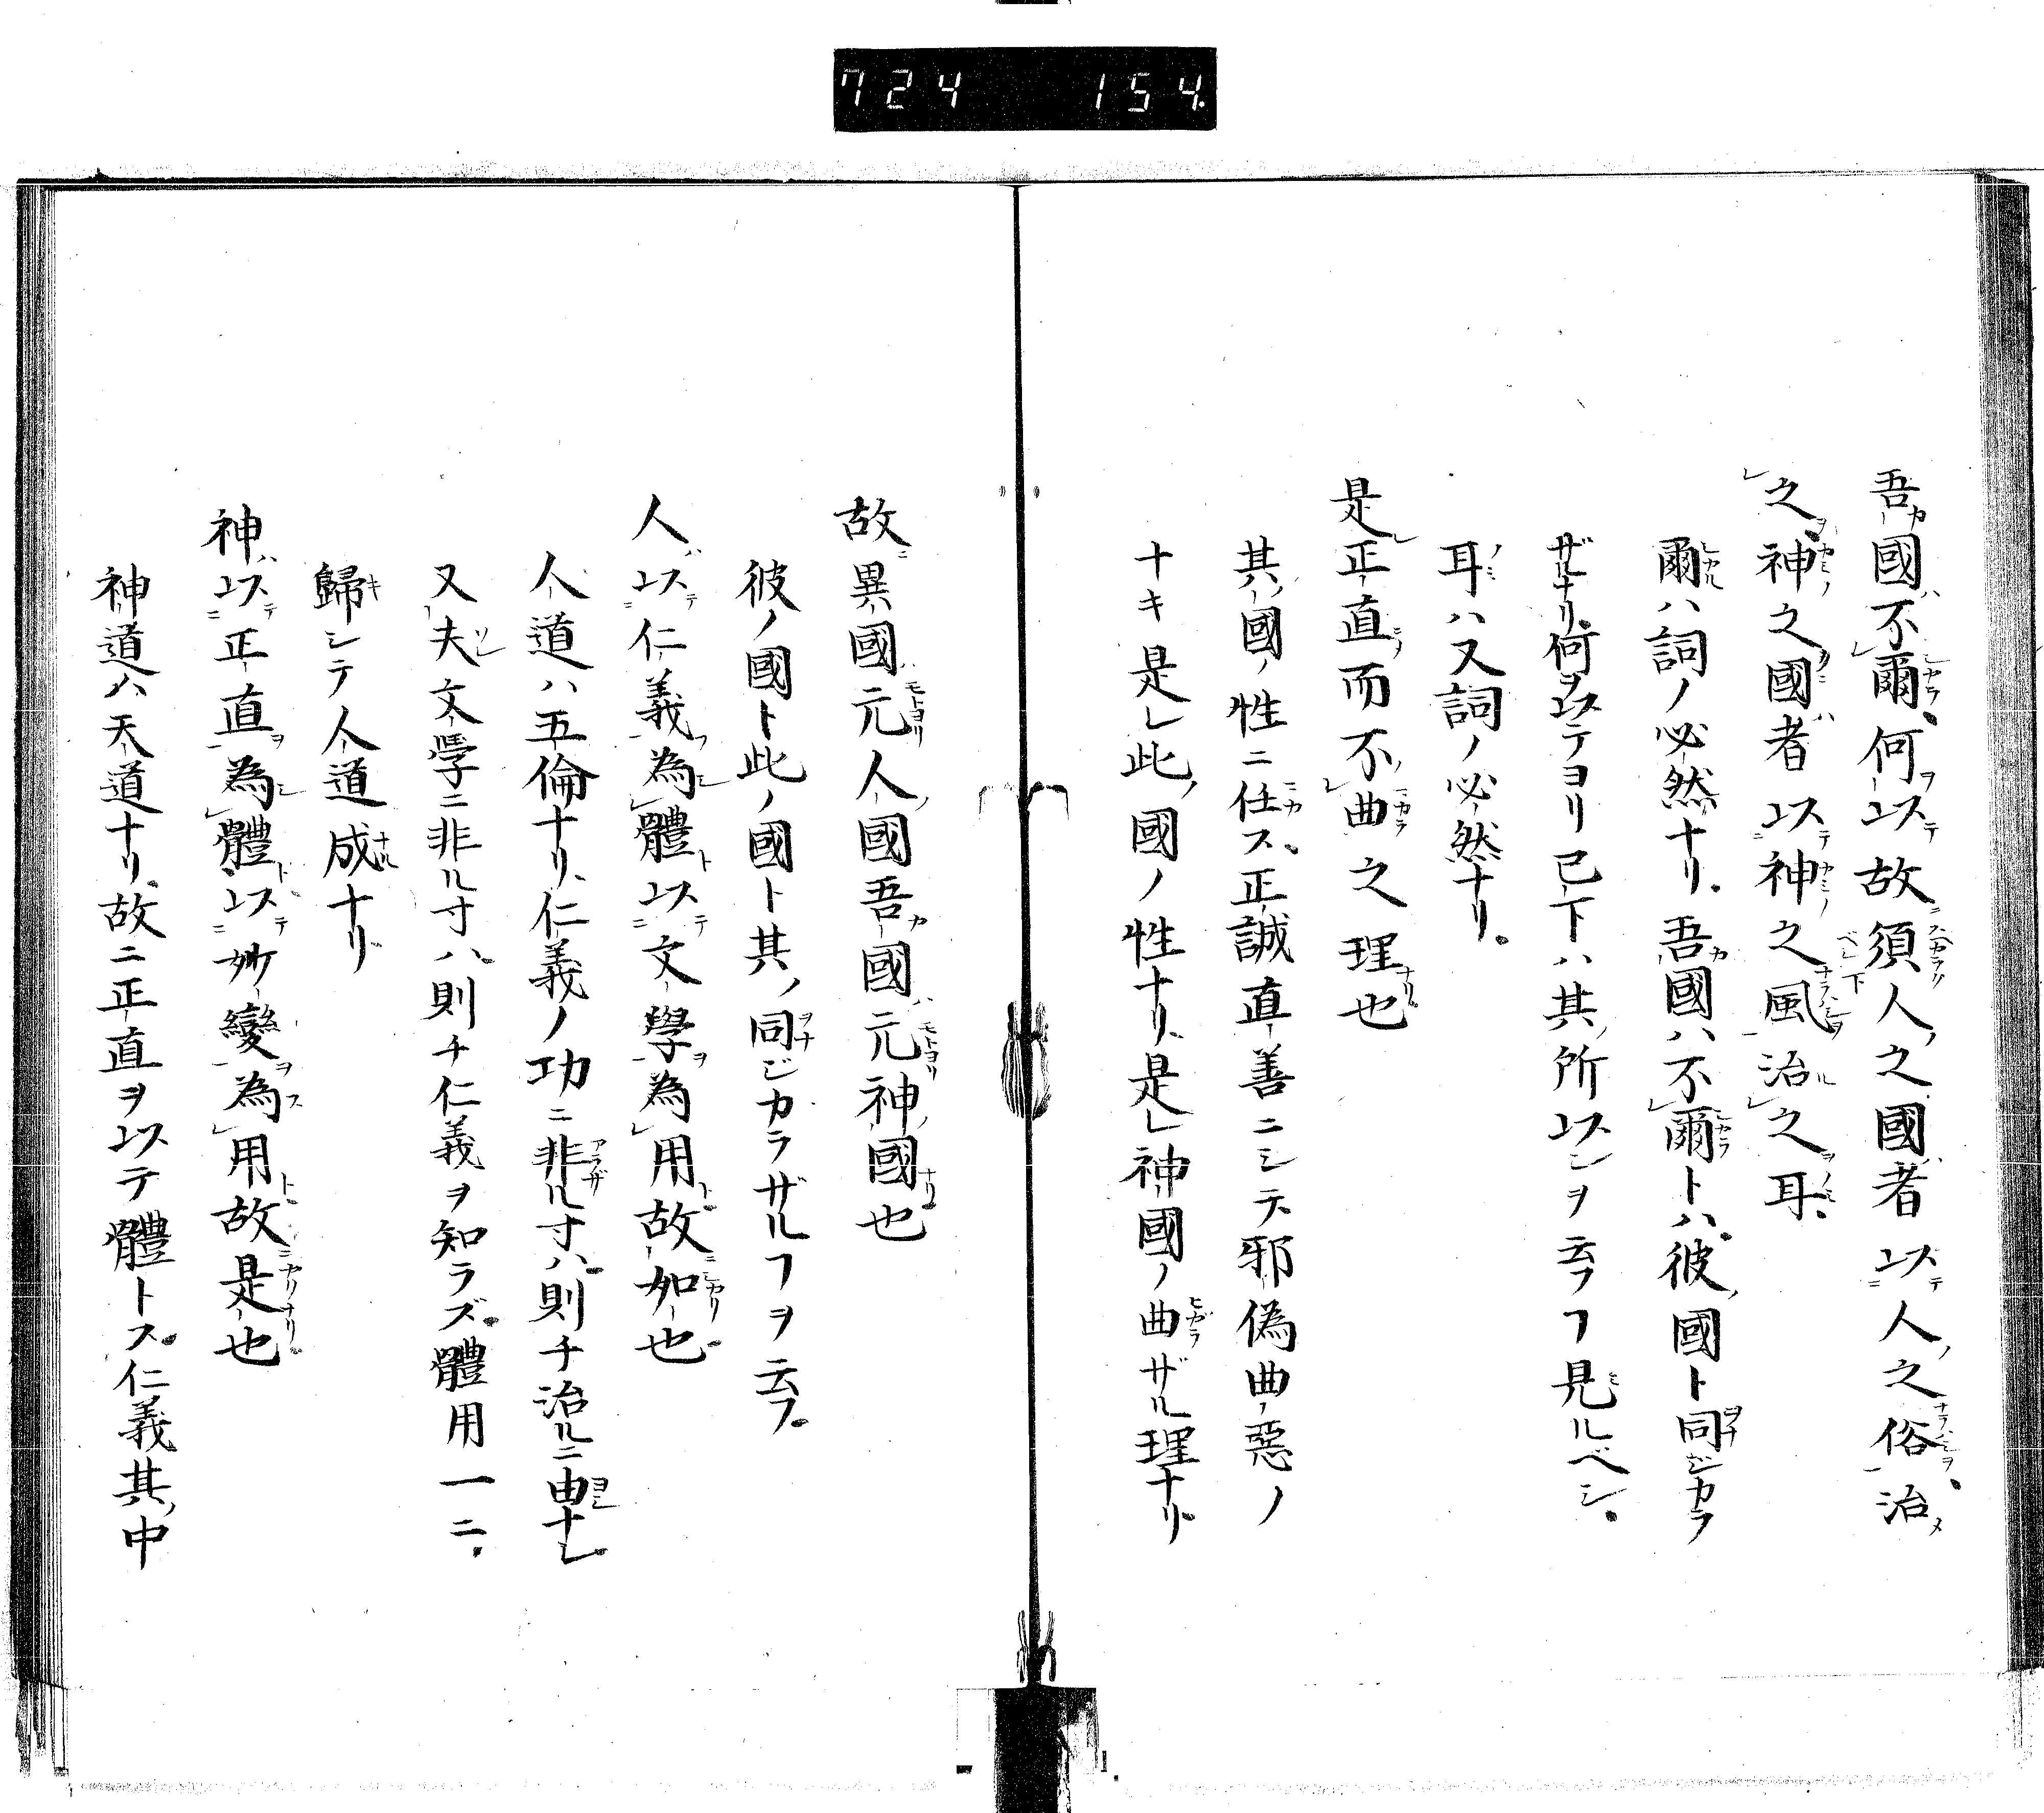 724 154
吾國不爾何以故須人之國者以人之俗治
之神之國者以神之風治之耳
爾ハ詞ノ必然ナリ吾國ハ不爾トハ彼國ト同ジカラ
ザルナリ何ヲ以テヨリ已下ハ其所以ンヲ云フヿ見ルベシ
耳ハ又詞ノ必然ナリ
是正直而不曲之理也
其國ノ性ニ任ス正誠直善ニシテ邪偽曲惡ノ
ナキ是レ此ノ國ノ性ナリ是レ神國ノ曲ザル理ナリ
故異國元人國吾國元神國也
彼ノ國ト此ノ國ト其ノ同ジカラザルヿヲ云フ
人以仁義為體以文學為用故如也
人道ハ五倫ナリ仁義ノ功ニ非ル寸ハ則チ治ルニ由ナシ
又夫文學ニ非ル寸ハ則チ仁義ヲ知ラズ體用一ニ
歸シテ人道成ナリ
神以正直為體以妙變為用故是也
神道ハ天道ナリ故ニ正直ヲ以テ體トス仁義其中